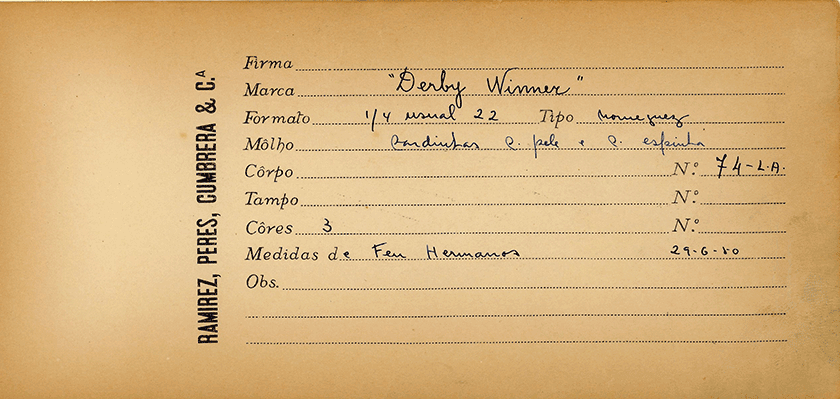 RAMIREZ, PERES, CUMBRERA & C.ᴬ
Firma
Marca "Derby Winner"
Formato 1/4 usual 22 Tipo norueguez
Môlho Sardinhas c. pele e c. espinha
Côrpo N.º 74-L.A.
Tampo N.º
Côres 3 N.º
Medidas de Feu Hermanos 29-6-50
Obs.